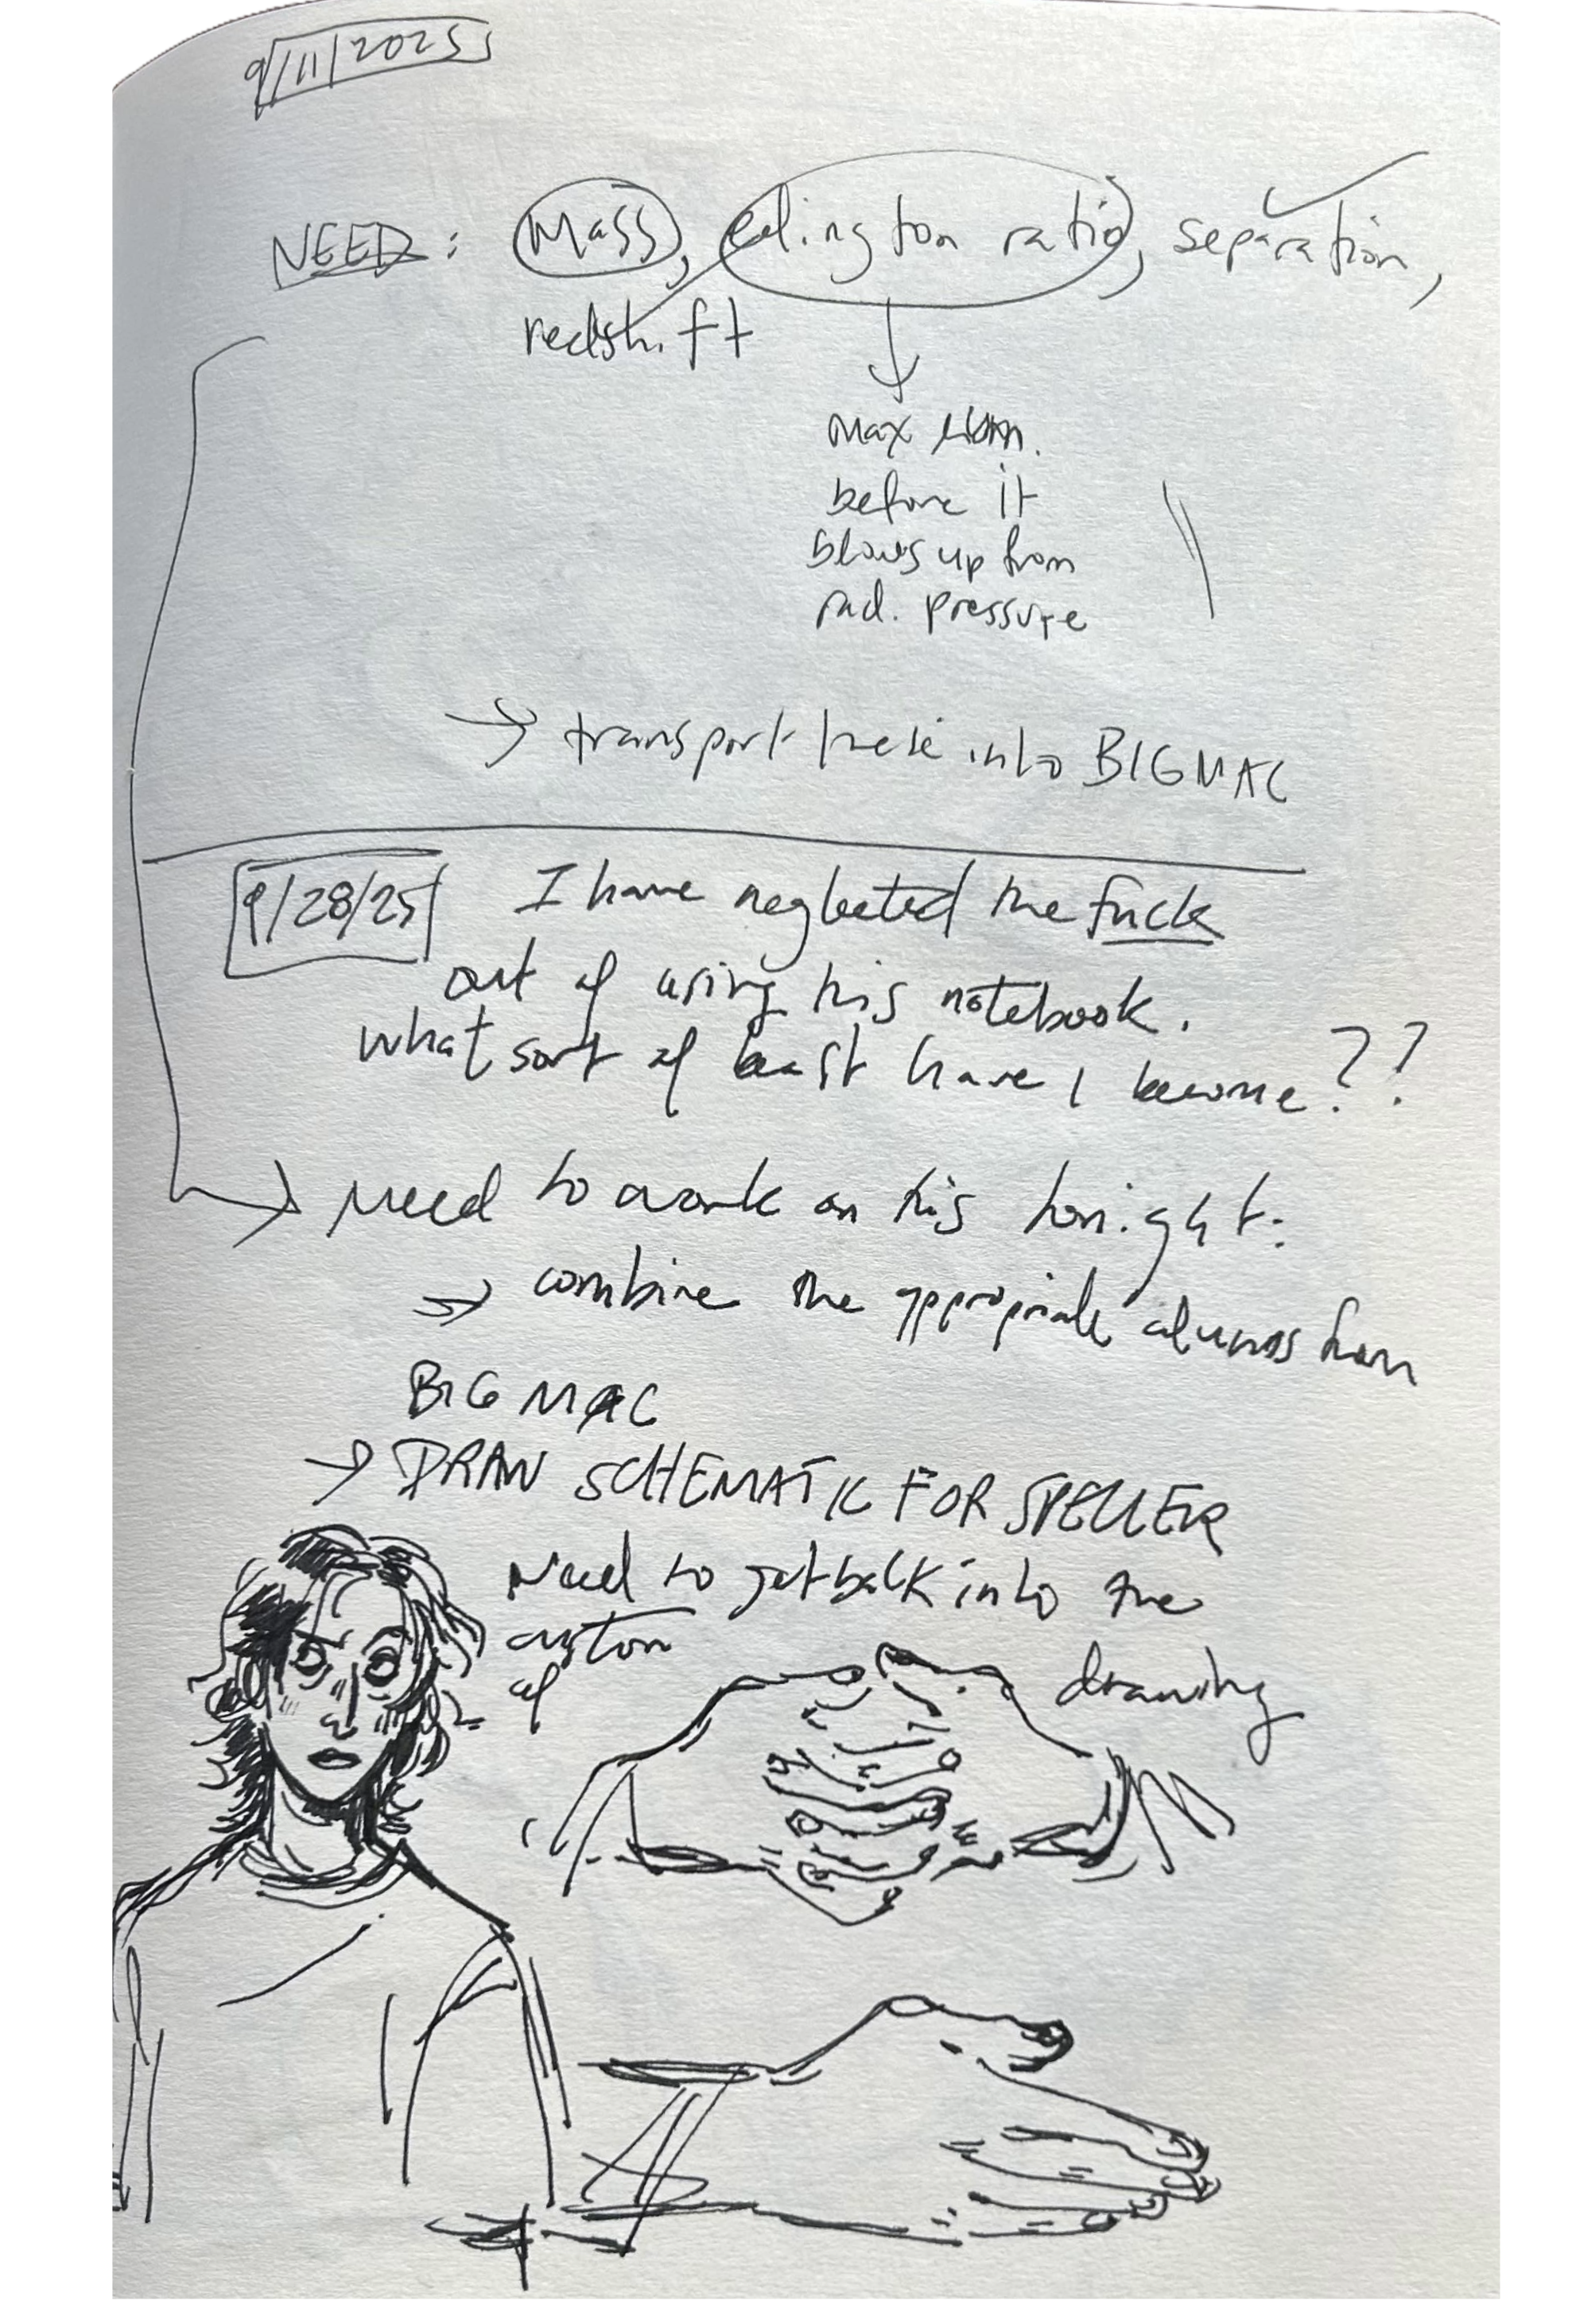 9/11/2025
NEED: Mass, edington ratio, separation,
redshift
max lum.
before it
blows up from
rad. pressure
→ transport these into BIGMAC
9/28/25 I have neglected the fuck
out of using this notebook.
what sort of beast have I become??
→ Need to work on this tonight:
→ combine the appropriate columns from
BIG MAC
→ DRAW SCHEMATIC FOR SPELLER
Need to get back into the
custom
of drawing